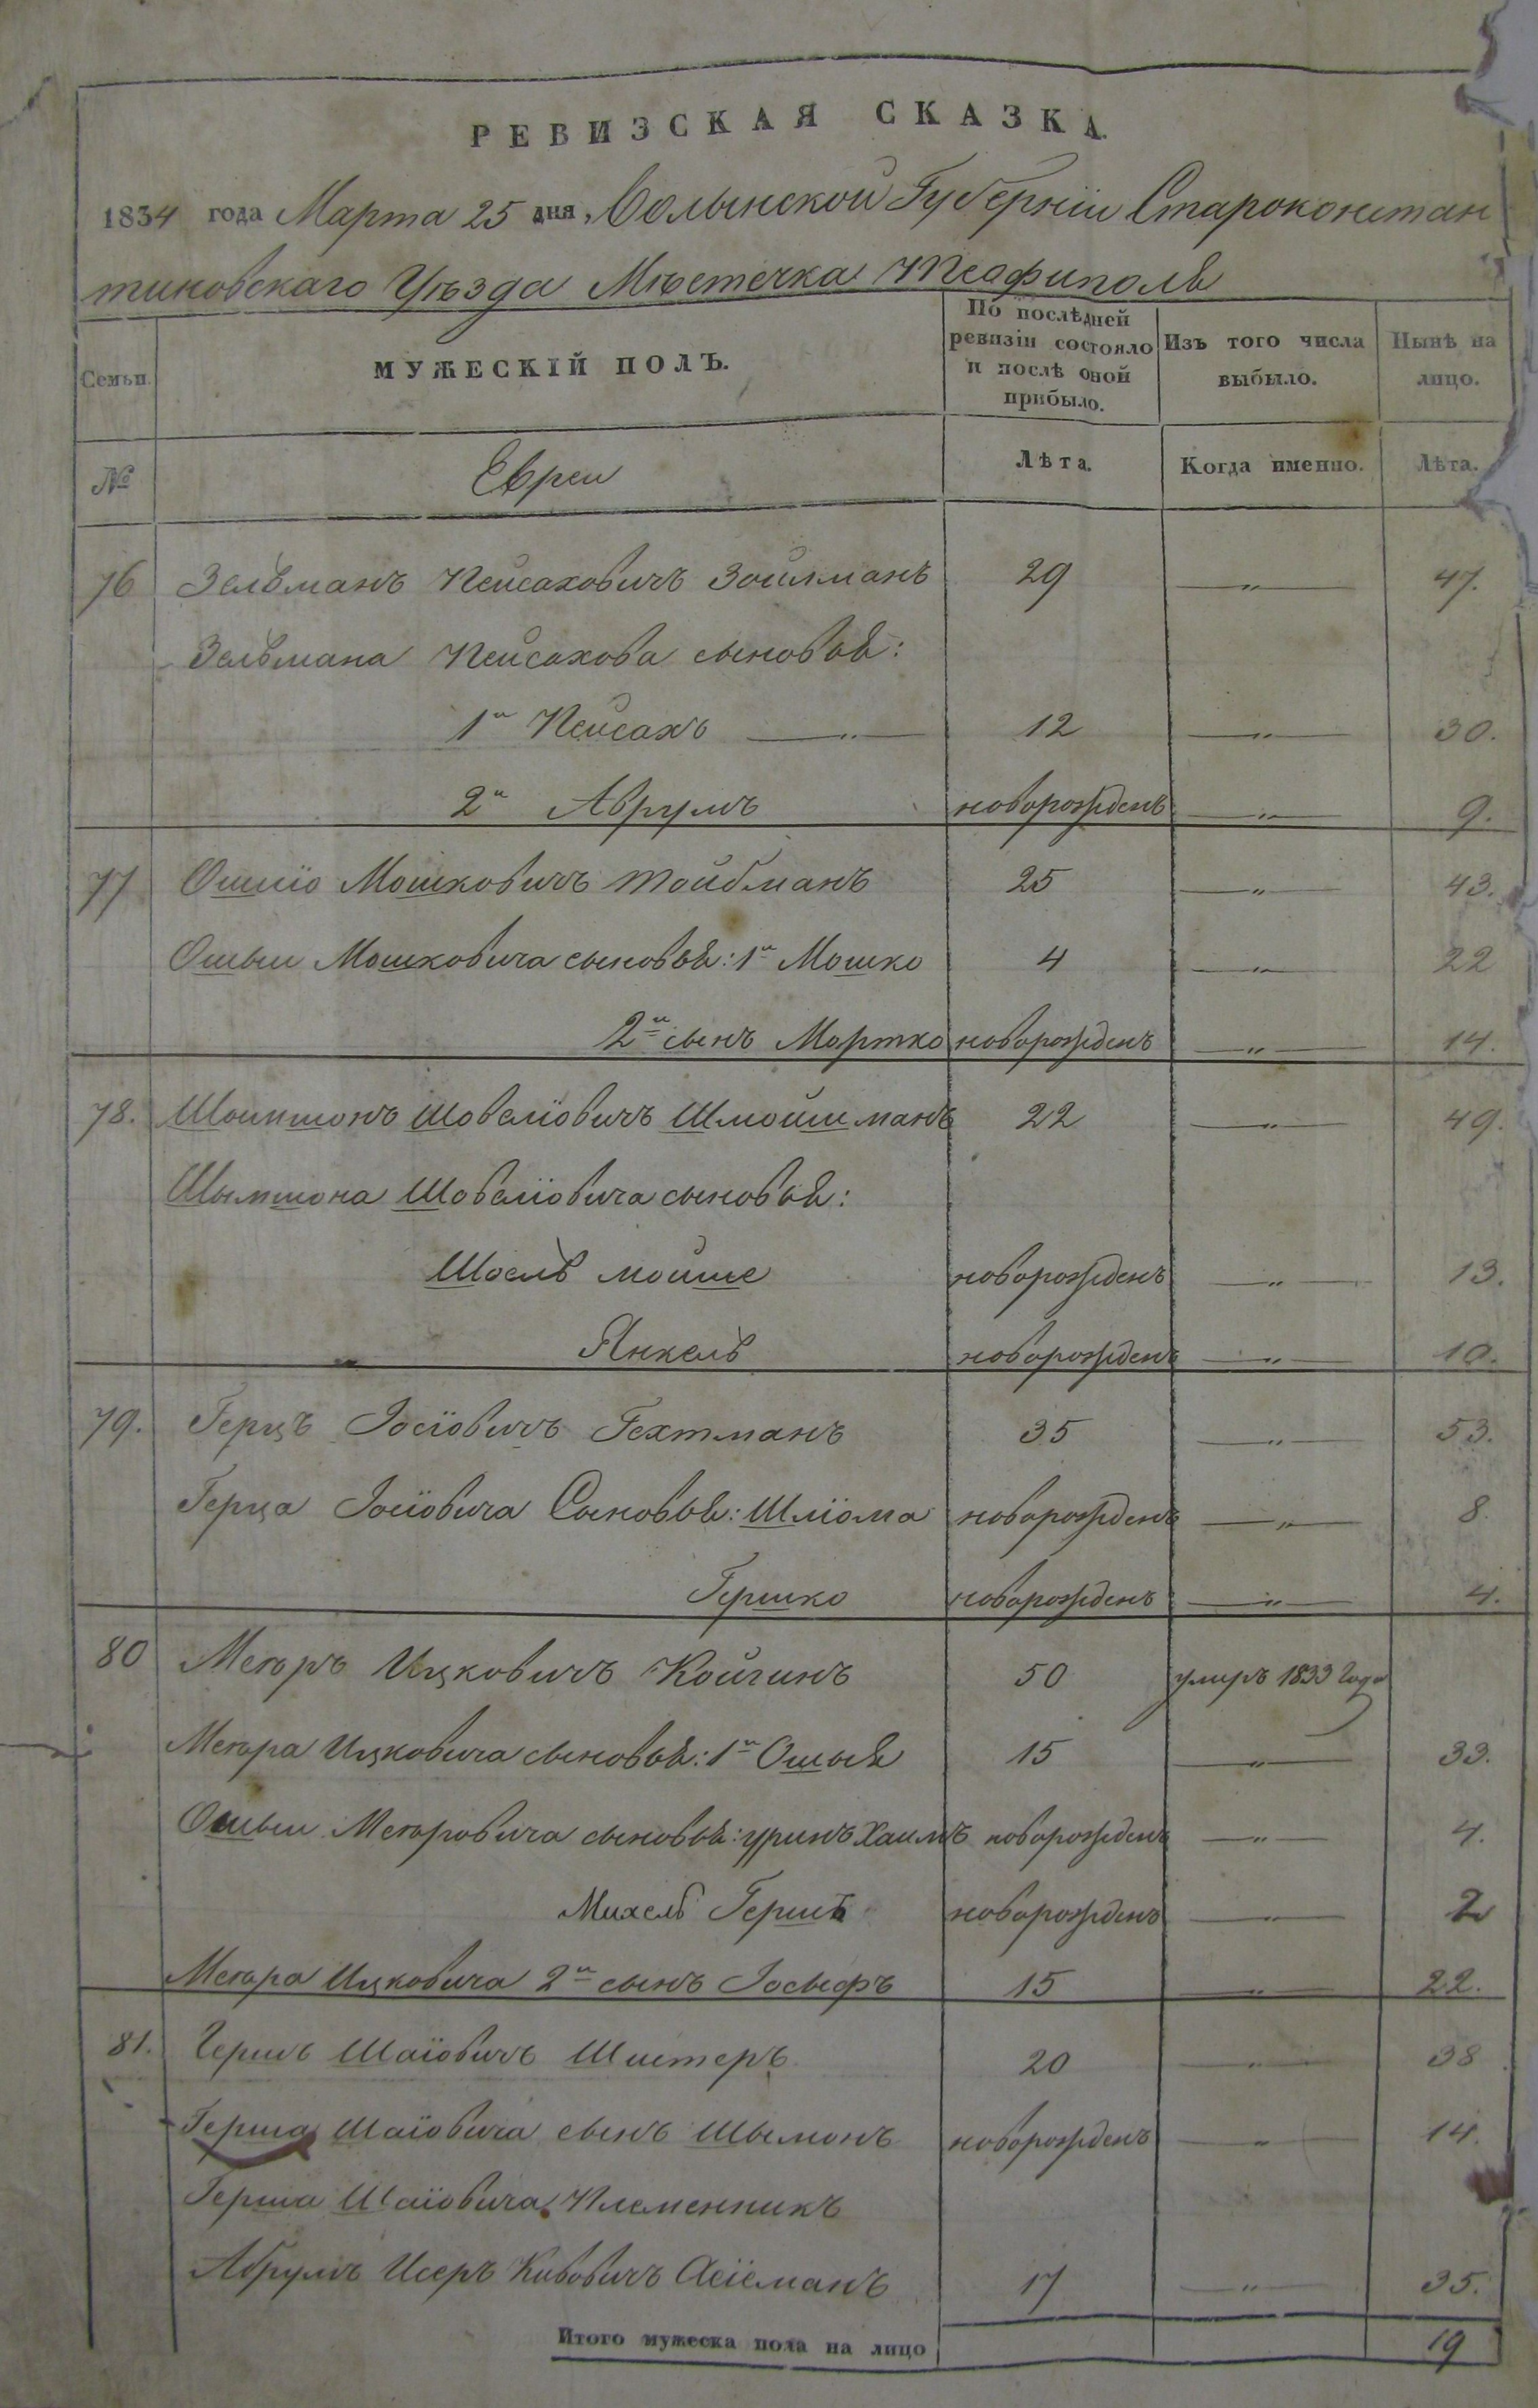 РЕВИЗСКАЯ СКАЗКА.
1834 года Марта 25 дня, Волынской Губернiи Староконстан
тиновскаго Уѣзда Мѣстечка Теофиполя
Семьи.
МУЖЕСКIЙ ПОЛЪ.
По послѣдней ревизiи состояло и послѣ оной прибыло.
Изъ того числа выбыло.
Нынѣ на лицо.
№
Евреи
Лѣта.
Когда именно.
Лѣта.
76 Зельманъ Пейсаховичъ Зойлманъ 29 — „ — 47.
Зельмана Пейсахова сыновья:
1й Пейсахъ — „ — 12 — „ — 30.
2й Аврумъ новорожденъ — „ — 9.
77 Ошiю Мошковичъ Тойбманъ 25 — „ — 43.
Ошыи Мошковича сыновья: 1й Мошко 4 — „ — 22
2й сынъ Мортко новорожденъ — „ — 14.
78. Шоимшонъ Шовелiовичъ Шмойшманъ 22 — „ — 49.
Шымшона Шовелiовича сыновья:
Шоель мойше новорожденъ — „ — 13.
Янкель новорожденъ — „ — 10.
79. Герцъ Iосiовичъ Гехтманъ 35 — „ — 53.
Герца Iосiовича Сыновья: Шлiома новорожденъ — „ — 8.
Гершко новорожденъ — „ — 4.
80 Меюръ Ицковичъ Койгинъ 50 умиръ 1833 года
Меюра Ицковича сыновья: 1й Ошыя 15 — „ — 33.
Ошыи Меюровича сыновья: уринъ Хаимъ новорожденъ — „ — 4.
Михель Гершъ новорожденъ — „ — 2
Меюра Ицковича 2й сынъ Iосьефъ 15 — „ — 22.
81. Гершъ Шаiовичъ Шистеръ 20 — „ — 38
Герша Шаiовича сынъ Шымонъ новорожденъ — „ — 14.
Герша Шаiовича Племенникъ
Абрумъ Исеръ Кивовичъ 17 — „ — 35.
Итого мужеска пола на лицо 19